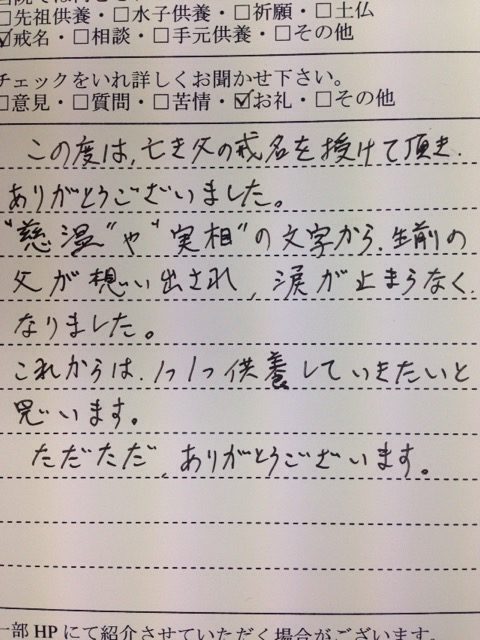 □先祖供養・□水子供養・□祈願・□土仏
☑戒名・□相談・□手元供養・□その他
チェックをいれ詳しくお聞かせ下さい。
□意見・□質問・□苦情・☑お礼・□その他
この度は、亡き父の戒名を授けて頂き、
ありがとうございました。
"慈温"や"実相"の文字から、生前の
父が想い出され、涙が止まらなく、
なりました。
これからは、1つ1つ供養していきたいと
思います。
ただただ、ありがとうございます。
一部HPにて紹介させていただく場合がございます。